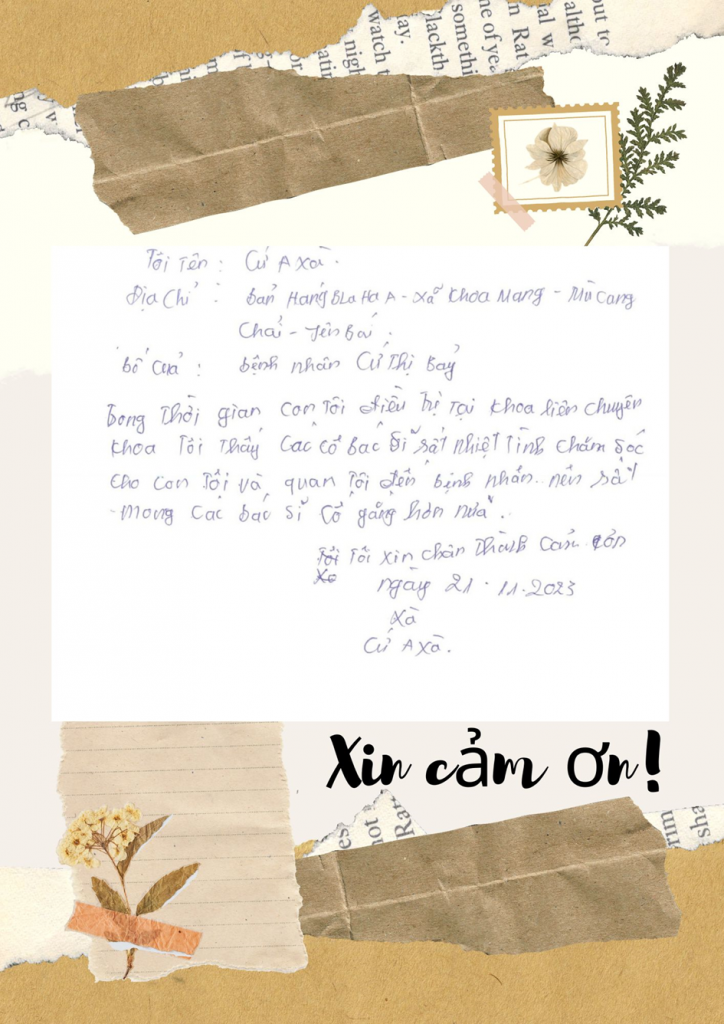 but to
altho
al w
in Rath
ne of yea
somethi
lackth
ay.
watch t
nigh
atin
ng c
Tôi Tên : Cứ A Xà.
Địa chỉ : bản Háng BLa Ha A - Xã Khoa Mang - Mù Cang
Chải - Yên Bái.
bố Của : bệnh nhân Cứ Thị Bảy
Trong Thời gian con Tôi điều Trị Tại Khoa liên chuyên
Khoa Tôi Thấy Các cô bác Sĩ rất nhiệt Tình Chăm Sóc
cho con Tôi và quan Tôi đến bệnh nhân.. nên rất
-Mong Các bác Sĩ Cố gắng hơn nữa.
Tôi Tôi xin chân Thành Cảm ơn
Xà
ngày 21.11.2023
Xà
Cứ A Xà.
Xin cảm ơn!
es
not
Rat
rm
sha